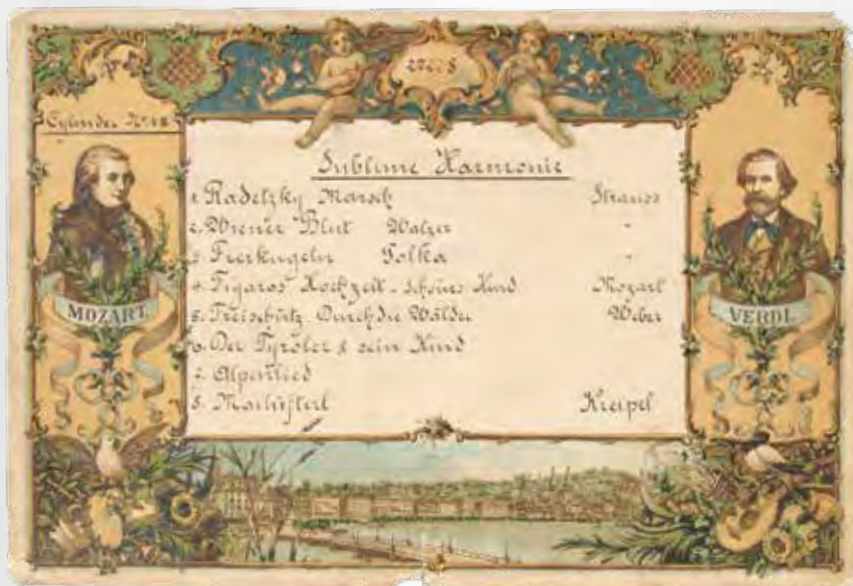 Cylinder No. 12
Sublime Harmonie
1. Radetzky Marsch Strauss
2. Wiener Blut Walzer "
3. Freikugeln Polka "
4. Figaros Hochzeit - schönes Kind Mozart
5. Freischütz Durch die Wälder Weber
6. Der Tyroler & sein Kind
7. Alpenlied
8. Mailüfterl Kreipel
MOZART
VERDI